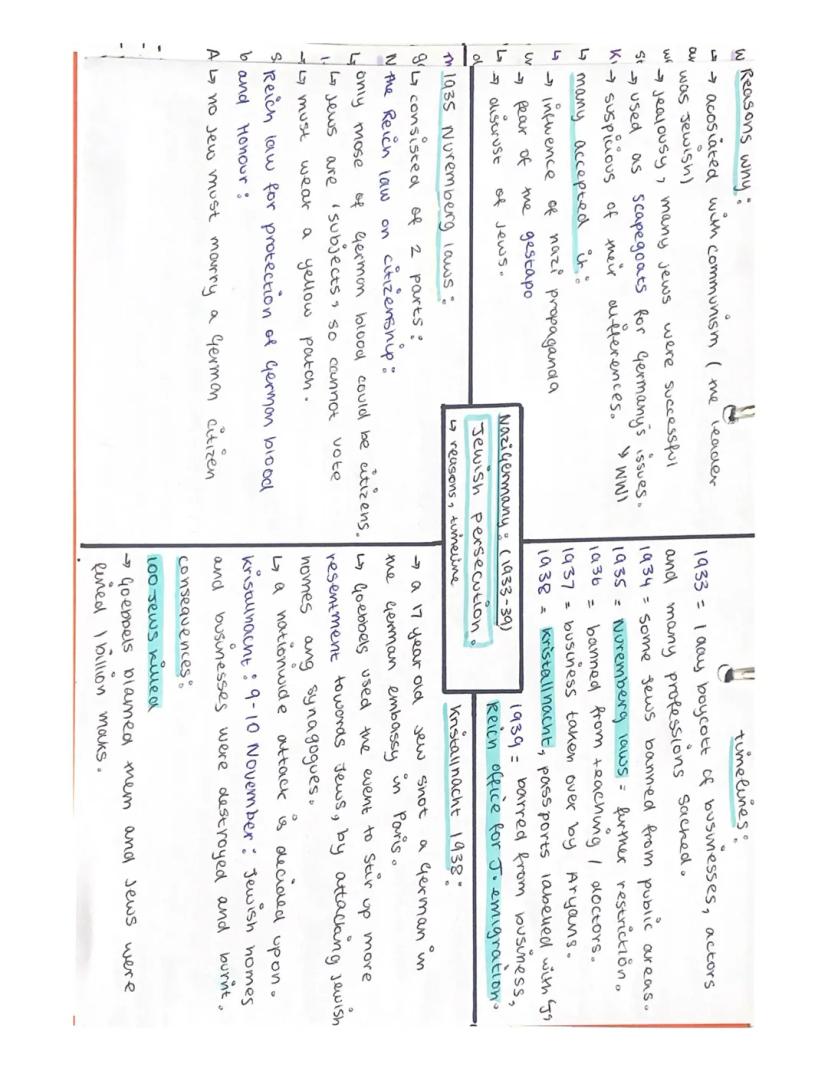 Nazi Germany: (1933-39)
Jewish persecution.
↳ reasons, timeline
Reasons why:
→ acosiated with communism (the leader
was Jewish)
→ jealousy, many Jews were successful
→ used as scapegoats for Germany's issues.
↘ WW1
→ suspicious of their differences.
many accepted it:
→ influence of nazi propaganda
→ fear of the gestapo
→ distrust of Jews.
timelines:
1933 = 1 day boycott of businesses, actors
and many professions sacked.
1934 = some Jews banned from public areas.
1935 = Nuremberg laws = further restriction.
1936 = banned from teaching / doctors.
1937 = business taken over by Aryans.
1938 = kristallnacht, passports labelled with 'J'
1939 = barred from business,
Reich office for J. emigration.
1935 Nuremberg laws:
↳ consisted of 2 parts:
the Reich law on citizenship:
↳ only those of German blood could be citizens.
↳ Jews are 'subjects' so cannot vote
↳ must wear a yellow patch.
Reich law for protection of German blood
and Honour:
↳ no Jew must marry a German citizen
Kristallnacht 1938:
→ a 17 year old Jew shot a German in
the German embassy in Paris.
↳ Goebbels used the event to stir up more
resentment towards Jews, by attacking Jewish
homes and synagogues.
↳ a nationwide attack is decided upon.
Kristallnacht: 9-10 November: Jewish homes
and businesses were destroyed and burnt.
consequences:
100 Jews killed
→ Goebbels blamed them and Jews were
fined 1 billion maks.